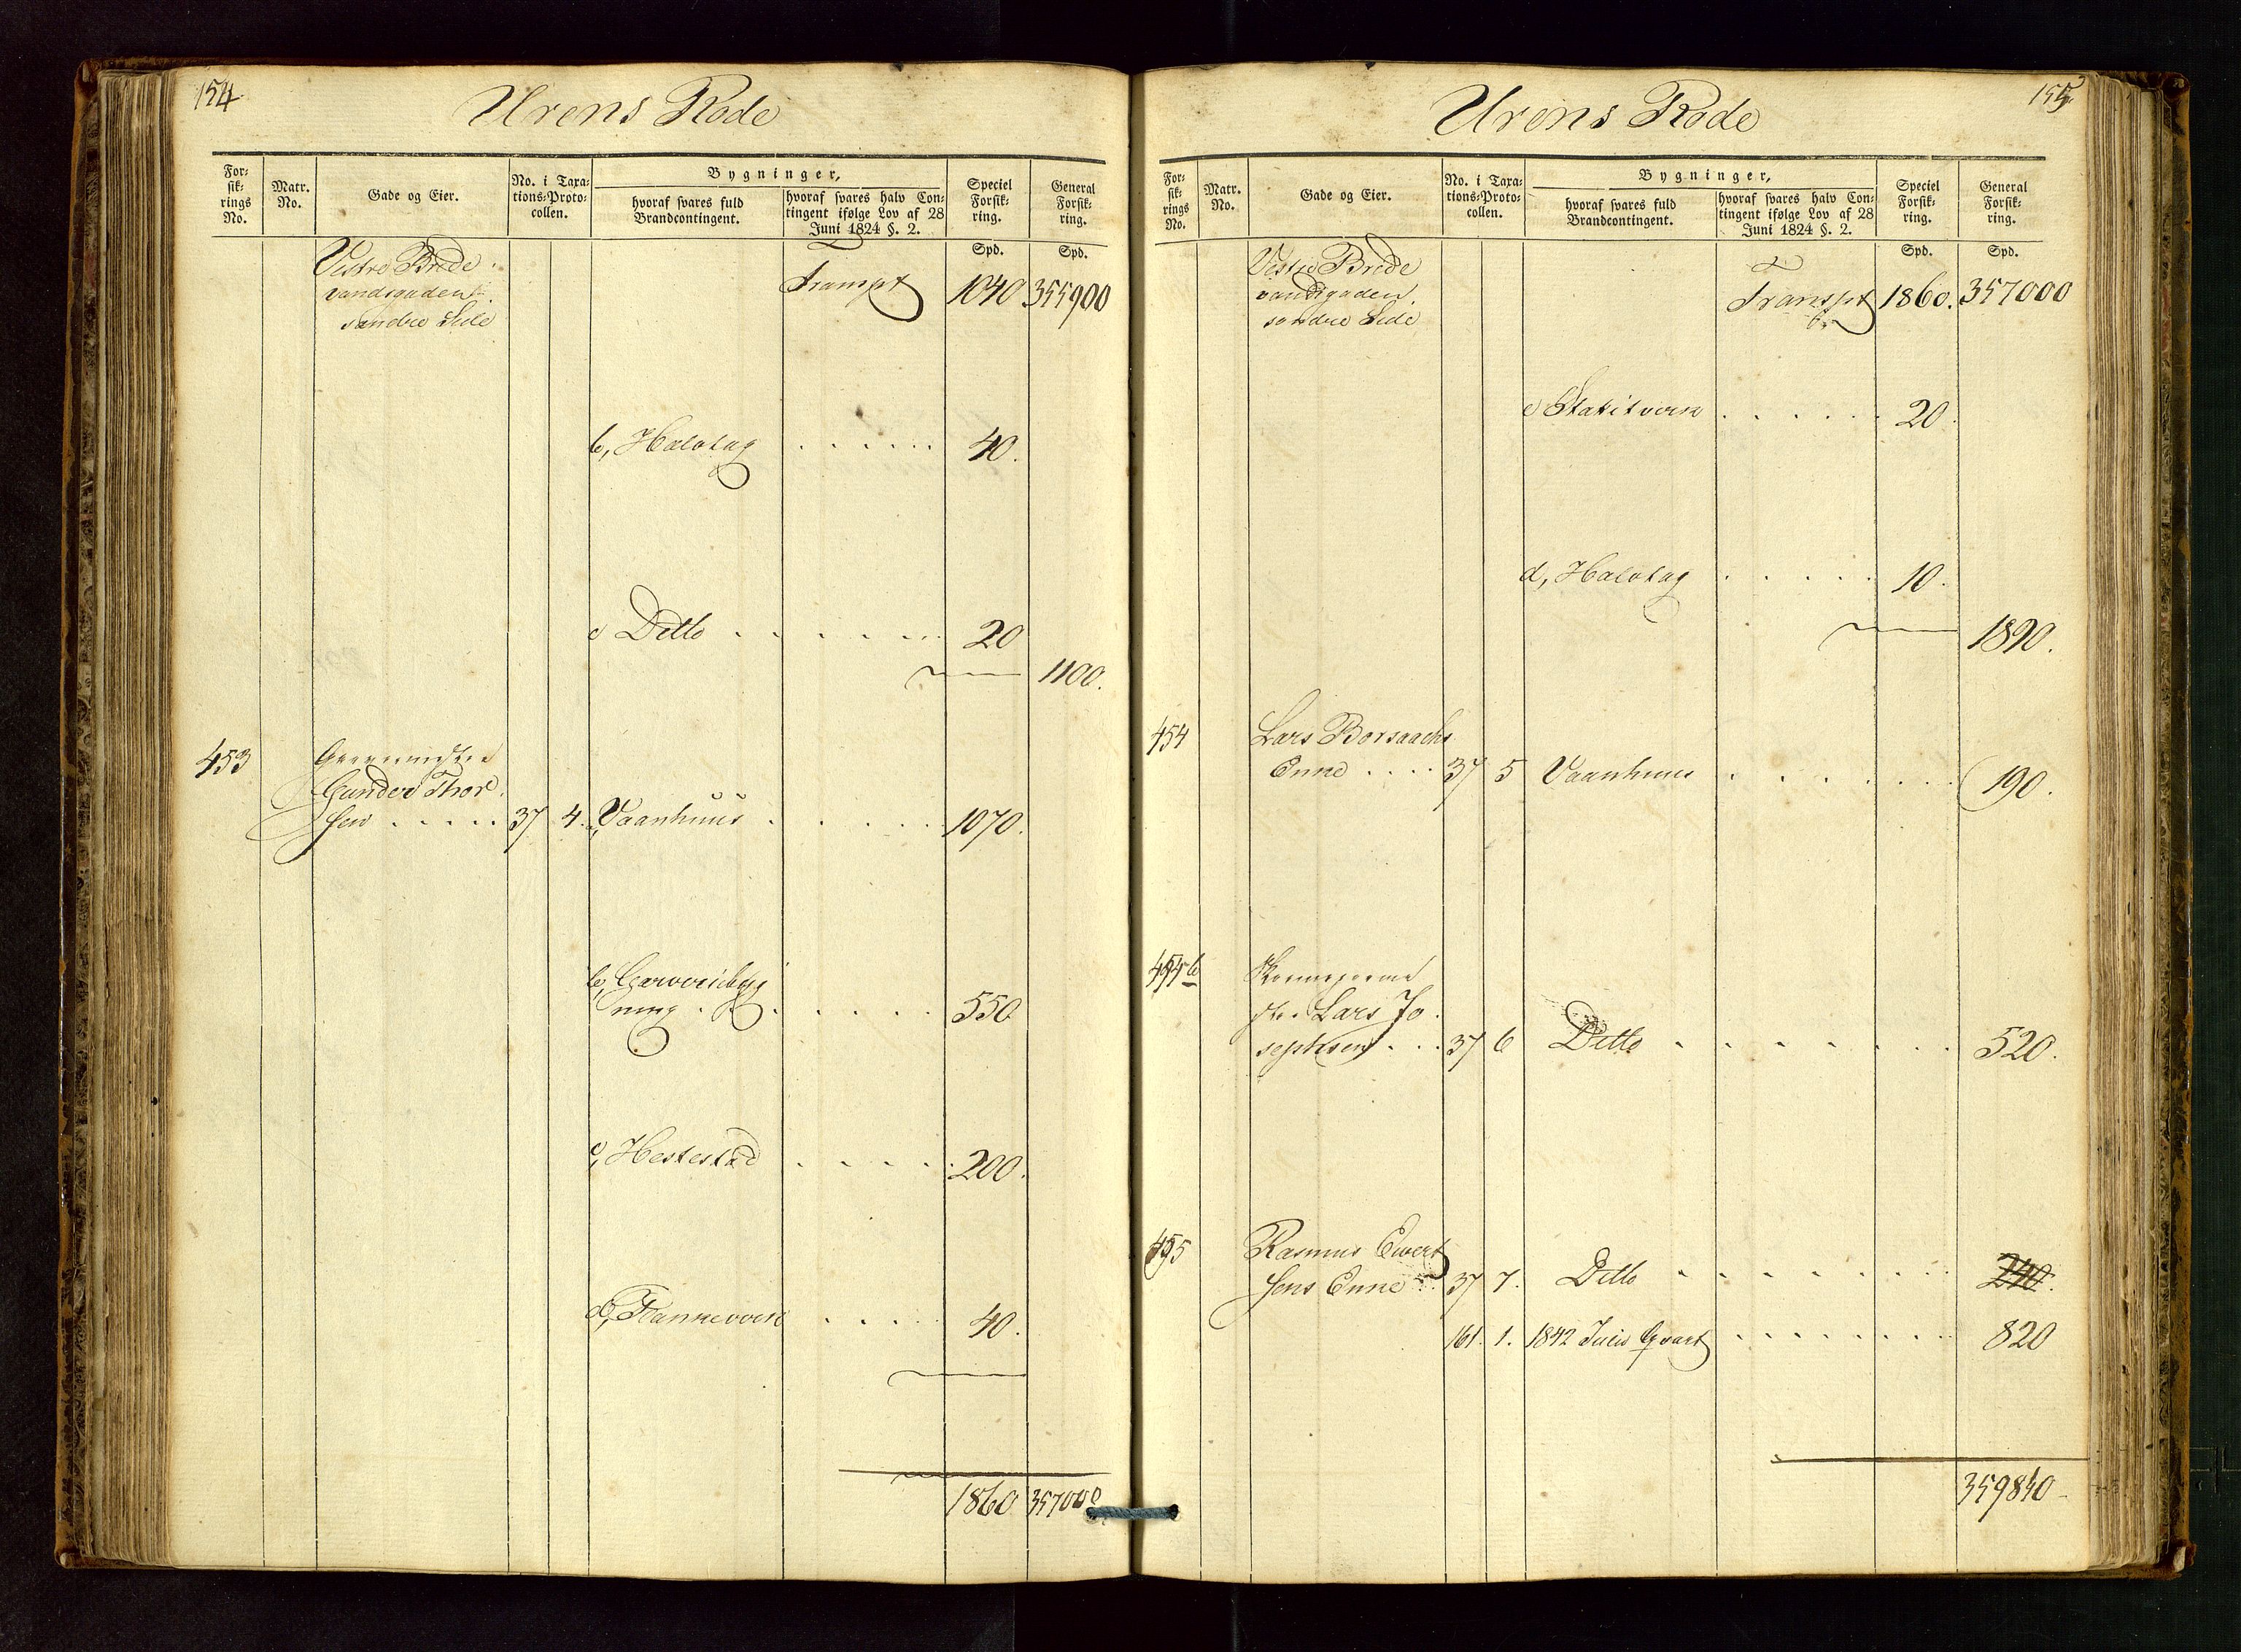 154
Urens Rode
For=
sik=
rings
No.
Matr.
No.
Gade og Eier.
No. i Taxa=
tions=Proto=
collen.
Bygninger,
hvoraf svares fuld
Brandcontingent.
hvoraf svares halv Con=
tingent ifølge Lov af 28
Juni 1824 §. 2.
Speciel
Forsik=
ring.
General
Forsik=
ring.
Spd. Spd.
Vestre Brede
vandsgaden
søndre Side
Transpt 1040 355900
b, Halvtag 40.
c Ditto 20
1100.
453
Garvermester
Gunder Thor
sen 37 4. a, Vaanhuus 1070.
b, Garveribyg
ning 550
c, Hestestad 200.
d, Plankeverk 40.
1860 357000
155
Urens Rode
For=
sik=
rings
No.
Matr.
No.
Gade og Eier.
No. i Taxa=
tions=Proto=
collen.
Bygninger,
hvoraf svares fuld
Brandcontingent.
hvoraf svares halv Con=
tingent ifølge Lov af 28
Juni 1824 §. 2.
Speciel
Forsik=
ring.
General
Forsik=
ring.
Spd. Spd.
Vestre Brede
vandsgaden
søndre Side
Transpt 1860. 357000
c Stakitverk 20.
d, Halvtag 10.
1890.
454 Lars
Enke 37 5 Vaanhuus 190.
454 b
Lars Jo
sephsen 37 6 Ditto 520.
455 Rasmus Evert
sens Enke 37 7. Ditto 240.
161. 1. 1842 Qvart 820
359840